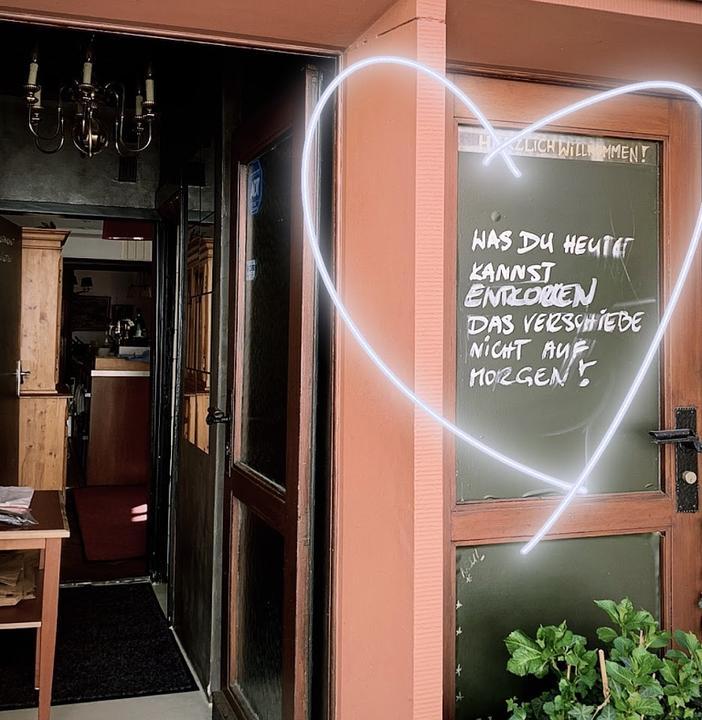 HERZLICH WILLKOMMEN!
WAS DU HEUTE
KANNST
ENTKORKEN
DAS VERSCHIEBE
NICHT AUF
MORGEN!